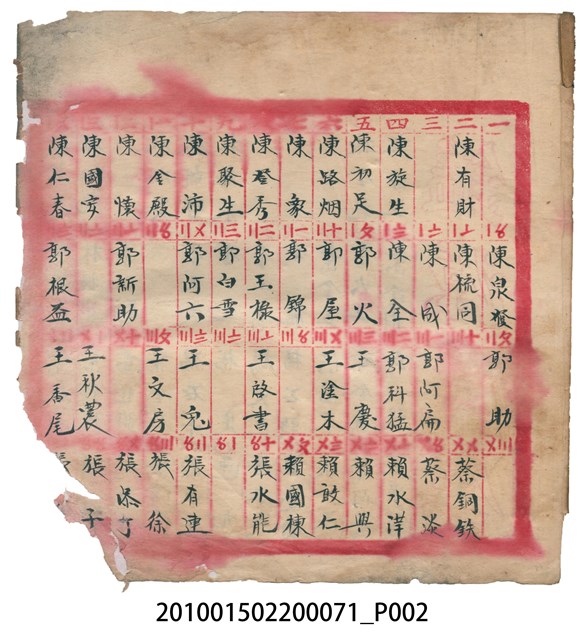 一
二
三
四
五
六
七
八
九
十
陳有財
陳旋生
陳初足
陳路烟
陳象
陳登秀
陳聚生
陳沛
陳金殿
陳懷
陳國安
陳仁春
陳泉發
陳梳同
陳成
陳全
郭火
郭屋
郭錦
郭玉椽
郭白雪
郭阿六
郭新助
郭根益
郭助
郭阿扁
郭科猛
王慶
王塗木
王啓書
王兎
王文房
王秋農
王喬尾
蔡銅鉄
蔡淡
賴水洋
賴興
賴敢仁
賴國棟
張水龍
張有連
張徐
張添丁
張子
201001502200071_P002